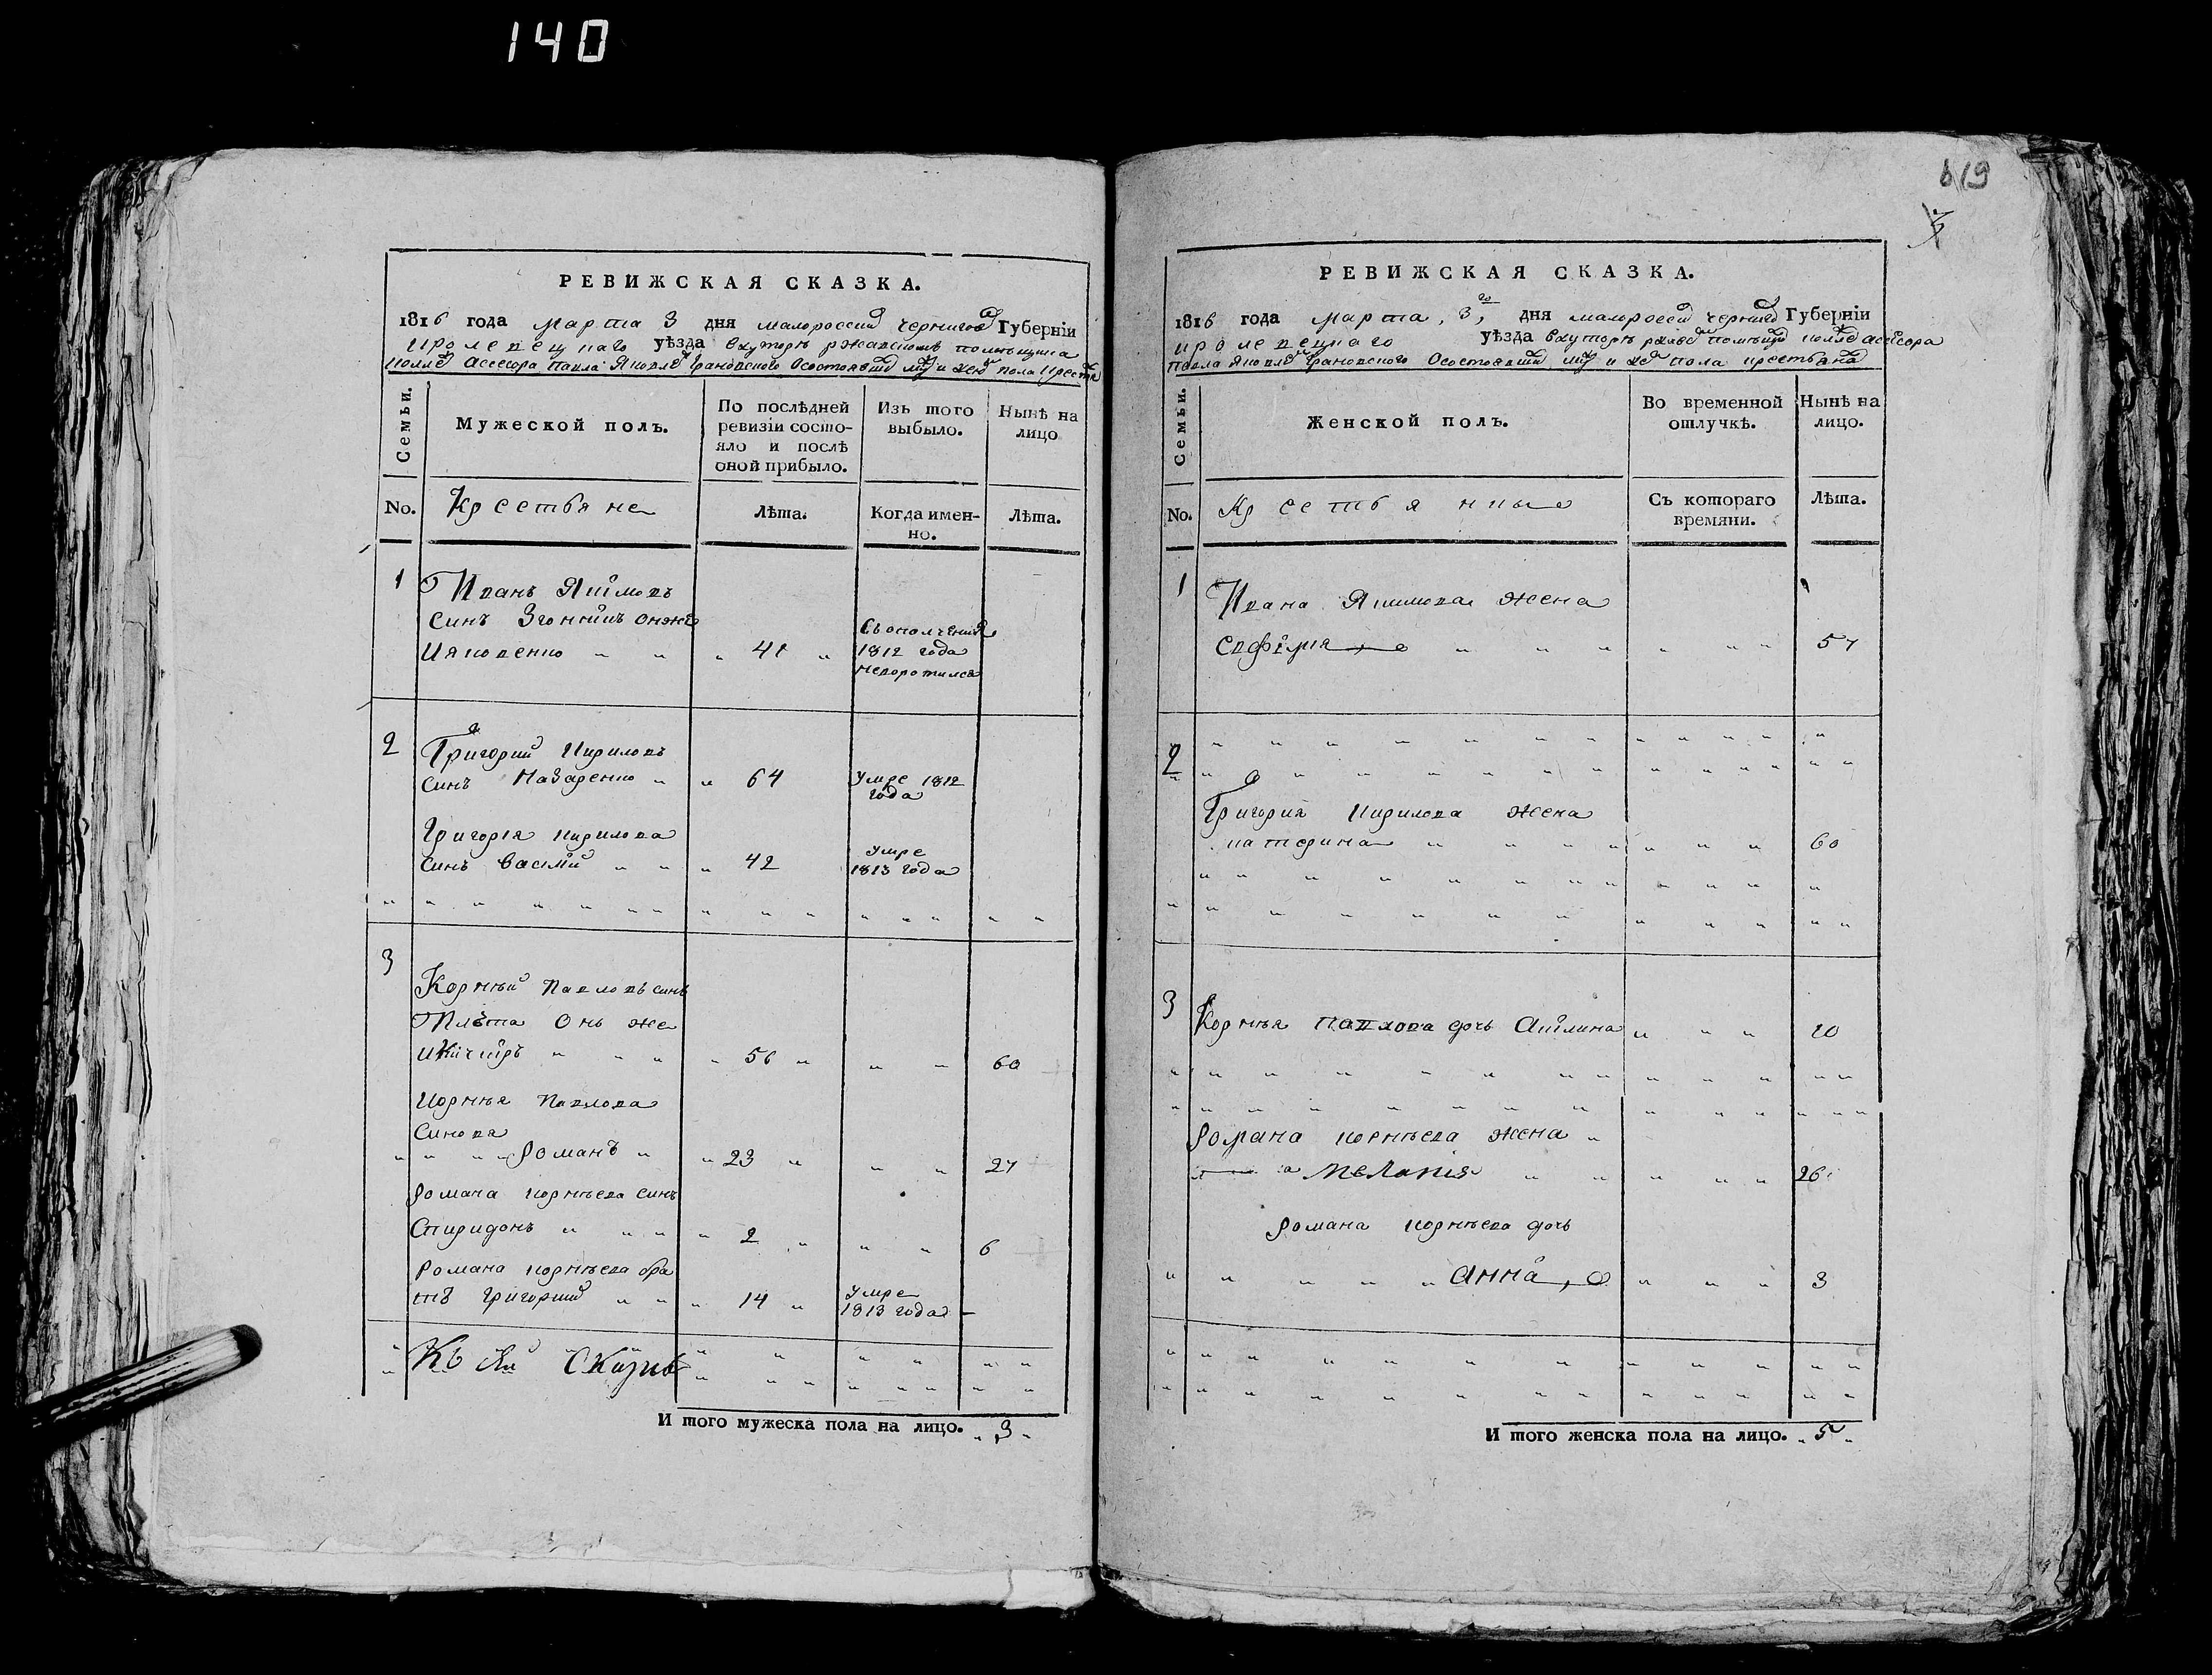 140
РЕВИЖСКАЯ СКАЗКА.
1816 года марта 3 дня малороссий чернигов Губернїи
кролевецкаго уѣзда вхуторѣ ржавскомъ помѣщика
Павла Яковле Грановского Осостоявши муж и жен пола
Семьи.
Мужеской полъ.
По послѣдней ревизіи состояло и послѣ оной прибыло.
Изъ того выбыло.
Нынѣ на лицо
No.
Крестьяне
Лѣта.
Когда именно.
Лѣта.
1
Иванъ Якимовъ
синъ онже
Яковенко 41
Сьополчения
1812 года
неворотился
2
Григорий Кириловъ
синъ Назаренко 64
умре 1812
года
Григорія кирилова
синъ Васили 42
умре
1813 года
3
Корнѣй Павловъ синъ
Онъ же
56 60
Корнѣя Павлова
Синовя
Романъ 23 27
Романа корнѣева синъ
Спиридонъ 2 6
Романа корнѣева бра
тъ григорий 14
умре
1813 года
Къ сѣй Сказкѣ
И того мужеска пола на лицо. 3
619
РЕВИЖСКАЯ СКАЗКА.
1816 года марта, 3го, дня малоросси черниго Губернїи
кролевецкаго уѣзда вхуторѣ асесора
Павла Яковле Грановского Осостоявши муж и же пола крестьяна
Семьи.
Женской полъ.
Во временной отлучкѣ.
Нынѣ на лицо.
No.
Крестьянки
Съ котораго времяни.
Лѣта.
1
Ивана Якимова жена
Евфимія 57
2
Григория Кирилова жена
катерина 60
3
Корнѣя павлова дочь Акилина 20
Романа корнѣева жена
Меланія 26
Романа корнѣева дочь
Анна, 3
И того женска пола на лицо. 5